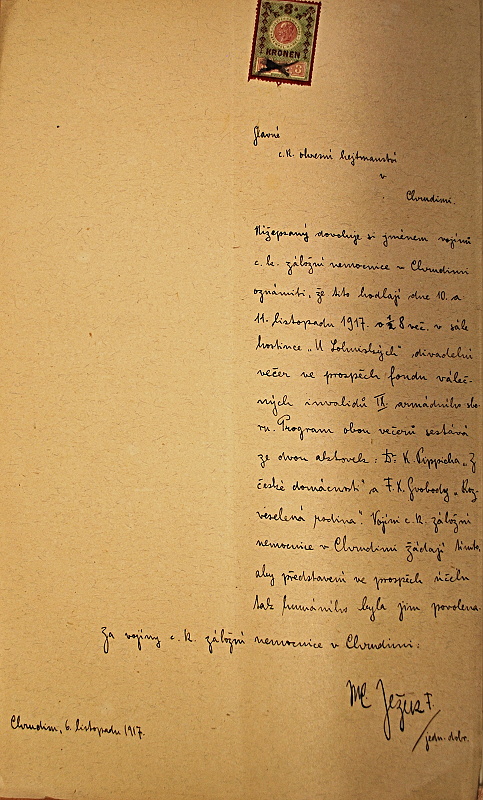 8
KRONEN
Slavné
c.k. okresní hejtmanství
v
Chrudimi.
Nížepsaný dovoluje si jménem vojínů
c. k. záložní nemocnice v Chrudimi
oznámiti, že tito hodlají dne 10. a
11. listopadu 1917. o ½ 8 več. v sále
hostince „U Lohniských" divadelní
večer ve prospěch fondu váleč-
ných invalidů IX. armádního sbo-
ru. Program obou večerů sestává
ze dvou aktovek: Dr. K. Pippicha „Z
české domácnosti" a F. X. Svobody „Roz-
veselená rodina". Vojíni c.k. záložní
nemocnice v Chrudimi žádají tímto,
aby představení ve prospěch účelu
tak humánního byla jim povolena.
Za vojíny c. k. záložní nemocnice v Chrudimi:
Ježek F.
jedn. dobr.
Chrudim, 6. listopadu 1917.